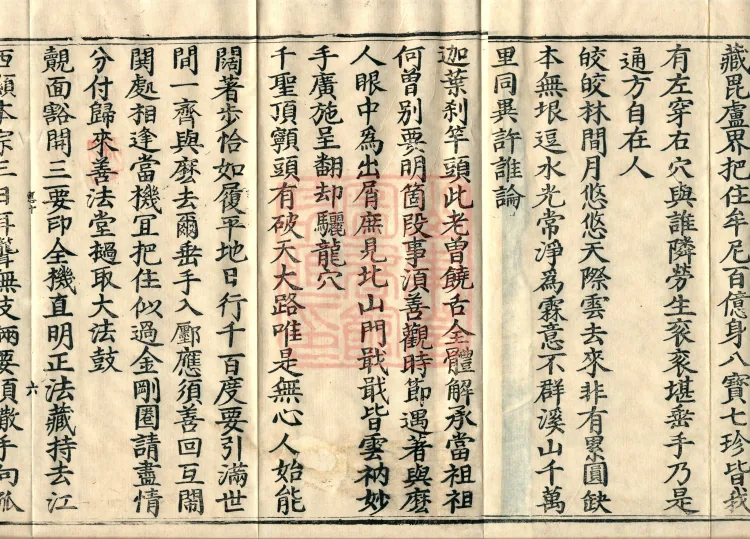 藏毘盧界把住牟尼百億身八寶七珍皆我
有左穿右穴與誰隣勞生衮衮堪垂手乃是
通方自在人
皎皎林間月悠悠天際雲去來非有累圓缺
本無垠逗水光常淨為霖意不群溪山千萬
里同異許誰論
迦葉刹竿頭此老曾饒舌全體解承當祖祖
何曾別要明箇段事須善觀時節遇著與麼
人眼中為出屑庶見北山門戢戢皆雲衲妙
手廣施呈翻却驪龍穴
千聖頂𩕳頭有破天大路唯是無心人始能
闊著步恰如履平地日行千百度要引滿世
間一齊與麼去爾垂手入鄽應須善回互鬧
閧處相逢當機冝把住似過金剛圈請盡情
分付歸來善法堂撾取大法鼓
覿面豁開三要印全機直明正法藏持去江
西顯本宗三日耳聾無技倆要須散手向孤
六